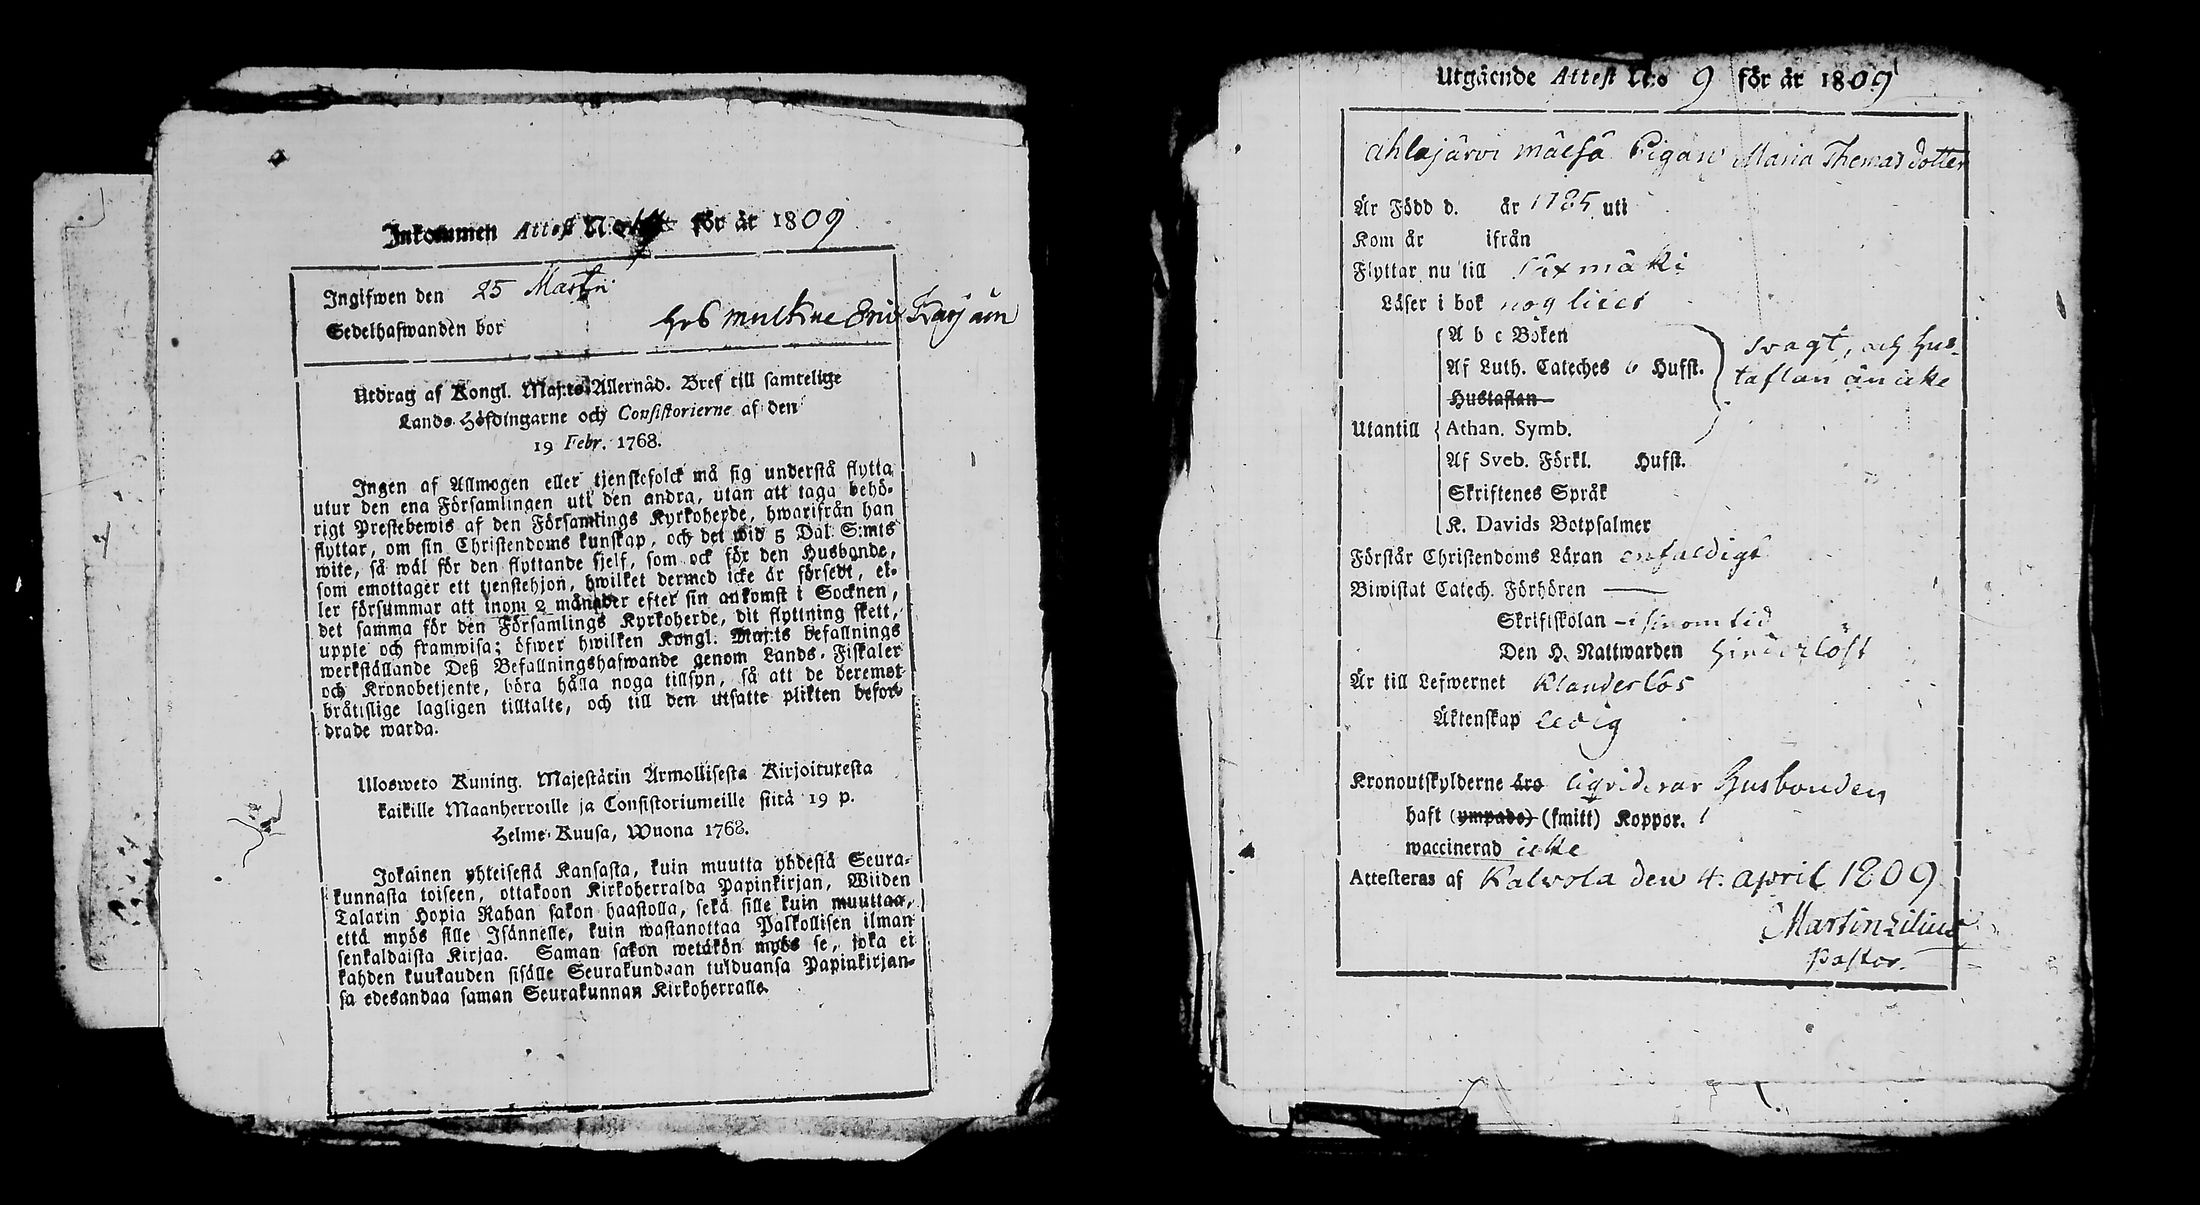 Inkommen Attest No för år 1809
Ingifwen den 25 Martii
Sedelhafwanden bor hos multine Eric Karjain
Utdrag af Kongl. Maj:ts Allernåd. Bref till samtelige
Lands-Höfdingarne och Consistorierne af den
19 Febr. 1768.
Ingen af Allmogen eller tjenstefolck må sig understå flytta
utur den ena Församlingen uti den andra, utan att taga behö-
rigt Prestebewis af den Församlings Kyrkoherde, hwarifrån han
flyttar, om sin Christendoms kunskap, och det wid 5 Dal. S:mts
wite, så wäl för den flyttande sjelf, som ock för den Husbonde,
som emottager ett tjenstehjon, hwilket dermed icke är försedt, el-
ler försummar att inom 2 månader efter sin ankomst i Socknen,
det samma för den Församlings Kyrkoherde, dit flyttning skett,
uppte och framwisa; öfwer hwilken Kongl. Maj:ts befallnings
werkställande Deß Befallningshafwande genom Lands-Fiskaler
och Kronobetjente, böra hålla noga tillsyn, så att de deremot
bråttslige lagligen tilltalte, och till den utsatte plikten befor-
drade warda.
Ulosweto Kuning. Majestätin Armollisesta Kirjoituxesta
kaikille Maanherroille ja Consistoriumeille siitä 19 p.
Helme-Kuusa, Wuonna 1768.
Jokainen yhteisestä Kansasta, kuin muutta yhdestä Seura-
kunnasta toiseen, ottakoon Kirkoherralda Papinkirjan, Wiiden
Talarin Hopia Rahan sakon haastolla, sekä sille kuin muuttaa,
että myös sille Isännelle, kuin wastanottaa Palkollisen ilman
senkaldaista Kirjaa. Saman sakon wetäkön myös se, joka ei
kahden kuukauden sisälle Seurakundaan tulduansa Papinkirjan-
sa edesandaa saman Seurakunnan Kirkoherralle.
Utgående Attest No 9 för år 1809
ahlajärvi mäesä Pigan Maria Thomas dotter
Är Född d. år 1785 uti
Kom år ifrån
Flyttar nu till Säxmäki
Läser i bok nog litet
A b c Boken
Af Luth. Cateches 6 Hufst.
Hustaflan
svagt, och hus-
taflan än icke
Utantill Athan. Symb.
Af Sveb. Förkl. Hufst.
Skriftenes Språk
K. Davids Botpsalmer
Förstår Christendoms Läran enfaldigt
Biwistat Catech. Förhören
Skriftskolan i sinom tid
Den H. Nattwarden hinderlöst
Är till Lefwernet Klanderlös
Äktenskap Ledig
Kronoutskylderne äro liqviderar Husbonden
haft (ympade) (smitt) Koppor.
waccinerad icke
Attesteras af Kalvola den 4. april 1809
Martin Lilius
Pastor.